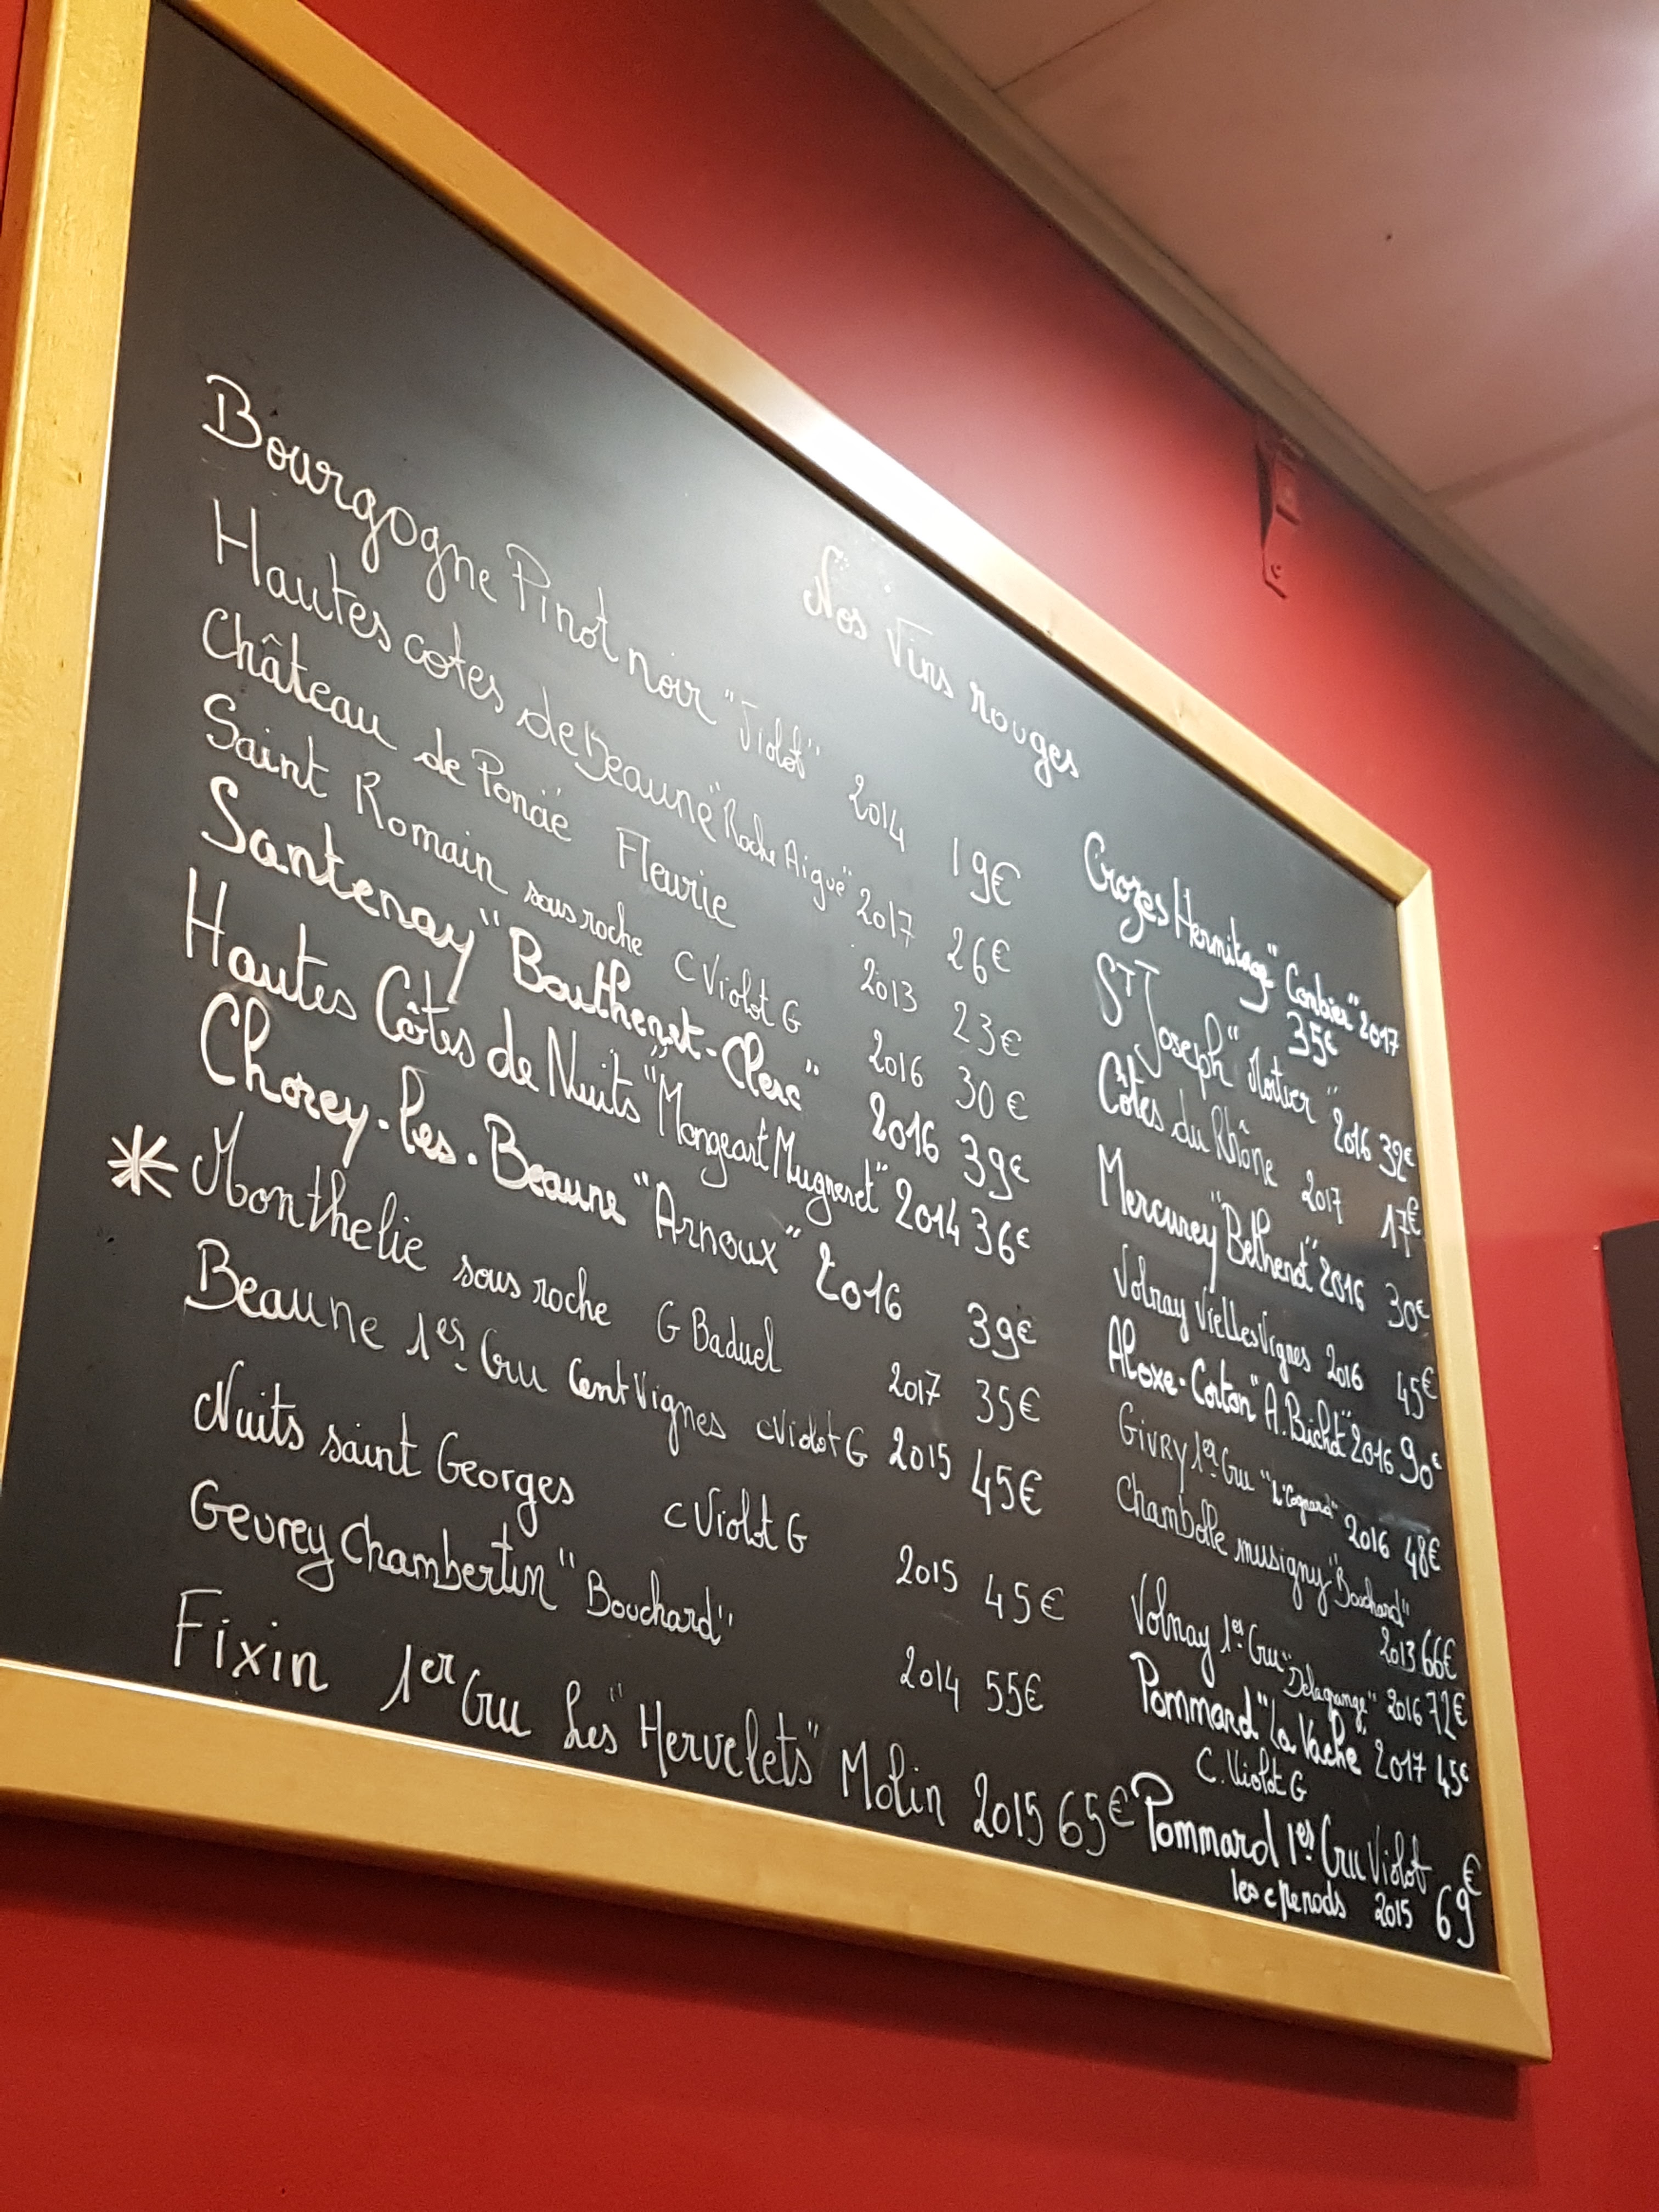 Nos Vins rouges
Bourgogne Pinot noir "Violot" 2014 19€
Hautes cotes de Beaune "Roche Aigue" 2017 26€
Château de Poncié Fleurie 2013 23€
Saint Romain sous roche C Violot G 2016 30€
Santenay "Bouthenet-Clerc" 2016 39€
Hautes Côtes de Nuits "Mongeart Mugneret" 2014 36€
Chorey-les-Beaune "Arnoux" 2016 39€
* Monthelie sous roche G Baduel 2017 35€
Beaune 1er Cru Cent Vignes C Violot G 2015 45€
Nuits saint Georges C Violot G 2015 45€
Gevrey Chambertin "Bouchard" 2014 55€
Fixin 1er Cru Les "Hervelets" Molin 2015 65€
Crozes Hermitage "Combier" 2017
35€
ST Joseph "Mortier" 2016 32€
Côtes du Rhône 2017 17€
Mercurey "Bethenod" 2016 30€
Volnay Vielles Vignes 2016 45€
Aloxe-Corton "A. Bichot" 2016 90€
Givry 1er Cru 2016 48€
Chambolle musigny "Bouchard"
2013 66€
Volnay 1er Cru "Delagrange" 2016 72€
Pommard "La Vache" 2017 45€
C. Violot G
Pommard 1er Cru Violot €
les epenods 2015 69